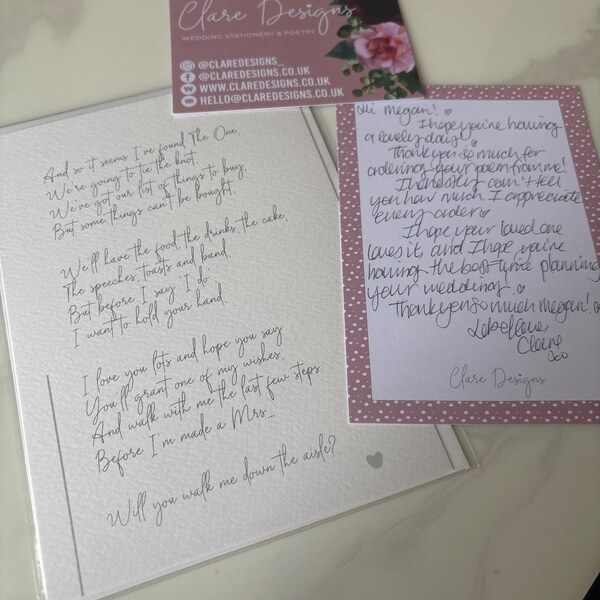 Clare Designs
WEDDING STATIONERY & POETRY
@CLAREDESIGNS_
@CLAREDESIGNS.CO.UK
WWW.CLAREDESIGNS.CO.UK
HELLO@CLAREDESIGNS.CO.UK
And so it seems I've found The One,
We're going to tie the knot.
We've got our list of things to buy,
But some things can't be bought.
We'll have the food, the drinks, the cake,
The speeches, toasts and band.
But before I say 'I do'
I want to hold your hand.
I love you lots and hope you say
You'll grant one of my wishes,
And walk with me the last few steps
Before I'm made a Mrs...
Will you walk me down the aisle?
Hi Megan!
I hope you're having
a lovely day!
Thankyou so much for
ordering your poem from me!
I honestly can't tell
you how much I appreciate
every order
I hope your loved one
loves it, and I hope you're
having the best time planning
your wedding.
Thankyou so much Megan!
Lots of love
Claire
xo
Clare Designs